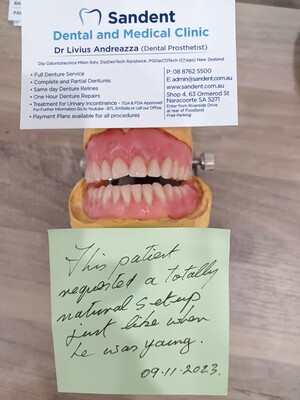 Sandent
Dental and Medical Clinic
Dr Livius Andreazza (Dental Prosthetist)
Dip Odontotecnica Milan Italy, DipDenTech Randwick, PGDipCDTech (Otago) New Zealand
• Full Denture Service
• Complete and Partial Dentures
• Same day Denture Relines
• One Hour Denture Repairs
• Treatment for Urinary Incontinence - TGA & FDA Approved
For Further Information Go to Youtube - BTL EmSella or call our Office.
• Payment Plans available for all procedures
P: 08 8762 5500
E: admin@sandent.com.au
www.sandent.com.au
Shop 4, 63 Ormerod St
Naracoorte SA 5271
Enter from Riverside Drive
at rear of Foodland
Free Parking
This patient
requested a totally
natural setup
just like when
he was young.
09.11.2023.